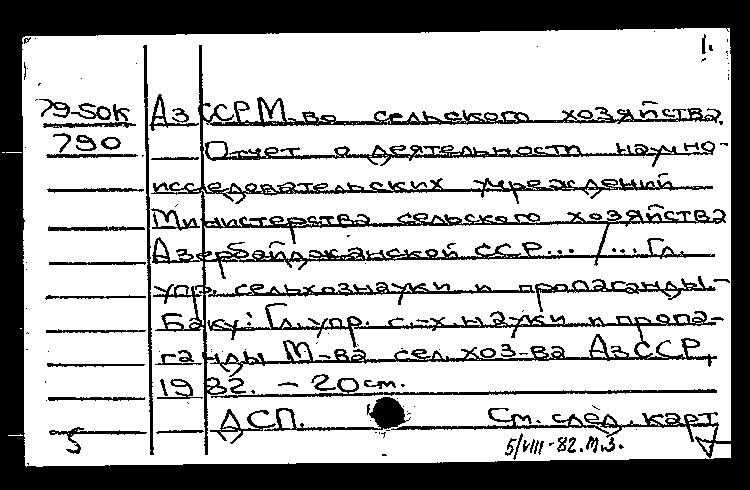 1.
79-50К АзССР. М-во сельского хозяйства.
790 Отчет о деятельности научно-
исследовательских учреждений
Министерства сельского хозяйства
Азербайджанской ССР... /...Гл.
упр. сельхознауки и пропаганды.-
Баку: Гл. упр. с.-х. науки и пропа-
ганды М-ва сел. хоз-ва АзССР,
1982. - 20 см.
ДСП. См. след. карт
5 5/VIII-82. М.З.